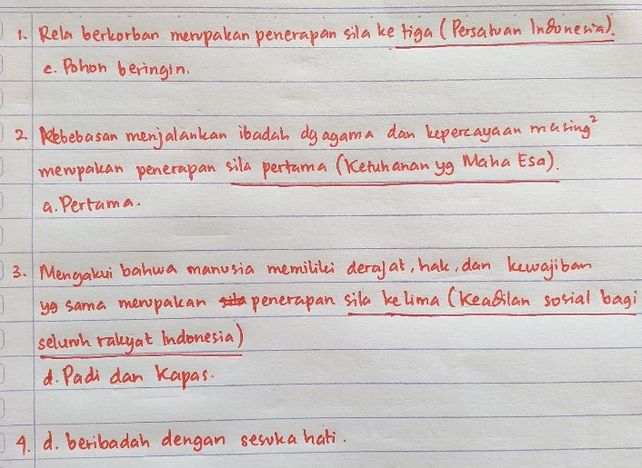 1. Rela berkorban merupakan penerapan sila ke tiga (Persatuan Indonesia).
c. Pohon beringin.
2. Kebebasan menjalankan ibadah dg agama dan kepercayaan masing²
merupakan penerapan sila pertama (Ketuhanan yg Maha Esa).
a. Pertama.
3. Mengakui bahwa manusia memiliki derajat, hak, dan kewajiban
yg sama merupakan sila penerapan sila kelima (Keadilan sosial bagi
seluruh rakyat Indonesia)
d. Padi dan Kapas.
4. d. beribadah dengan sesuka hati.